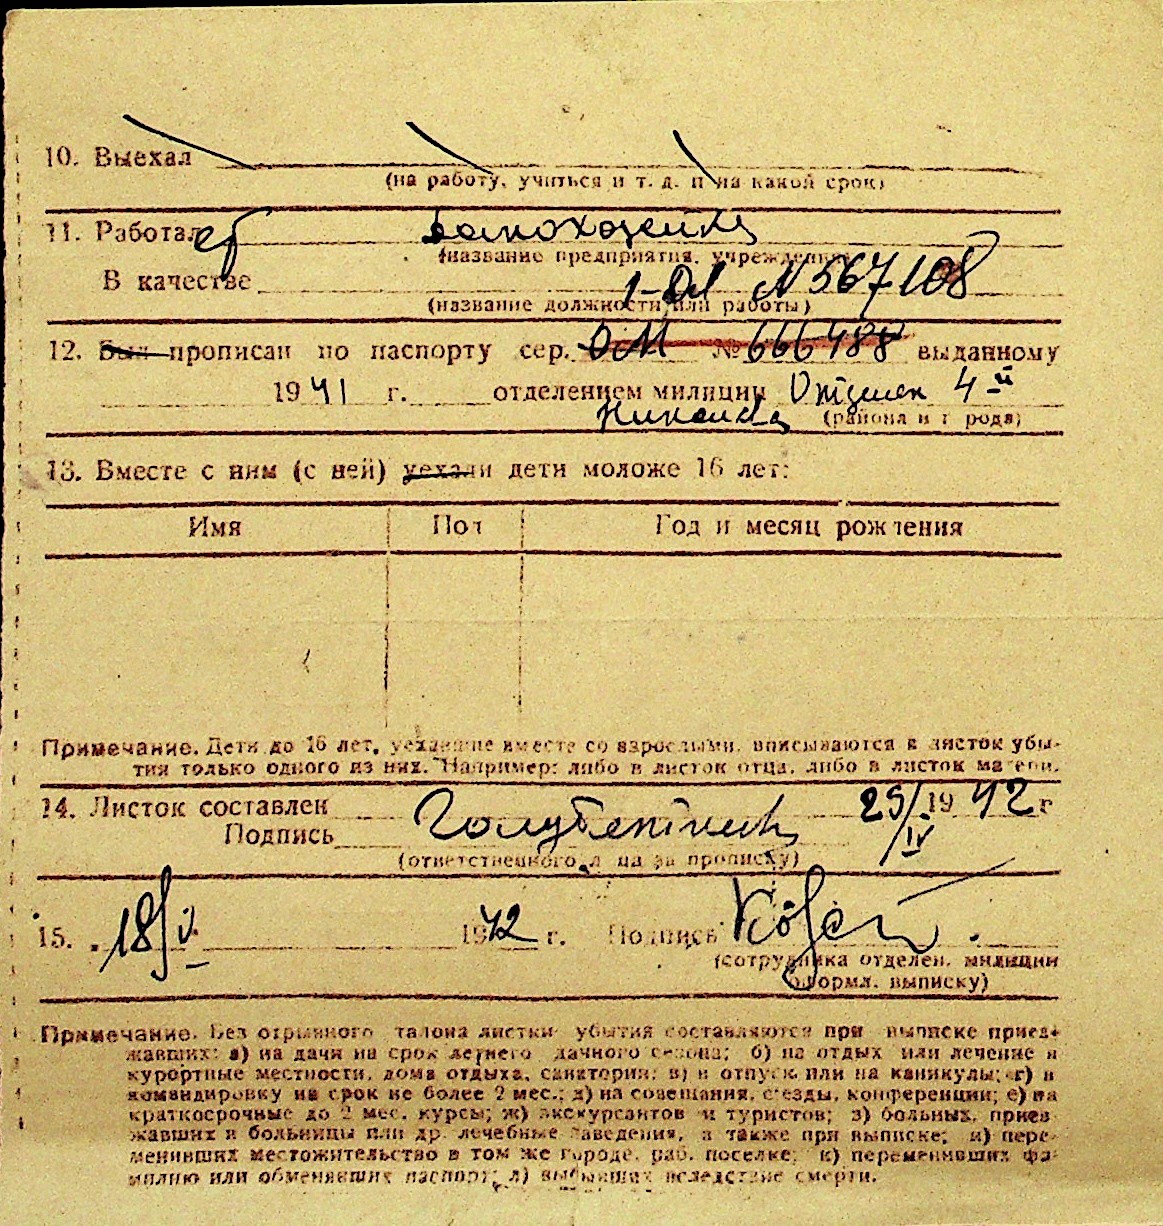 10. Выехал
(на работу, учиться и т. д. и на какой срок)
11. Работал
(название предприятия, учреждения)
В качестве 1-ДМ N 567108
(название должности или работы)
12. Был прописан по паспорту сер. ОМ № 666488 выданному
1941 г. отделением милиции 4-й
(района и города)
13. Вместе с ним (с ней) уехали дети моложе 16 лет:
Имя Пол Год и месяц рождения
Примечание. Дети до 16 лет, уехавшие вместе со взрослыми, вписываются в листок убы-
тия только одного из них. Например: либо в листок отца, либо в листок матери.
14. Листок составлен 25/IV 1942 г
Подпись
(ответственного лица за прописку)
15. 18/V 1942 г. Подпись
(сотрудника отделен. милиции
оформл. выписку)
Примечание. Без отрывного талона листки убытия составляются при выписке приез-
жавших: а) на дачи на срок летнего дачного сезона; б) на отдых или лечение в
курортные местности, дома отдыха, санатории; в) в отпуск или на каникулы; г) в
командировку на срок не более 2 мес.; д) на совещания, с'езды, конференции; е) на
краткосрочные до 2 мес. курсы; ж) экскурсантов и туристов; з) больных, приез-
жавших в больницы или др. лечебные заведения, а также при выписке; и) пере-
менивших местожительство в том же городе, раб. поселке; к) переменивших фа-
милию или обменявших паспорт; л) выбывших вследствие смерти.